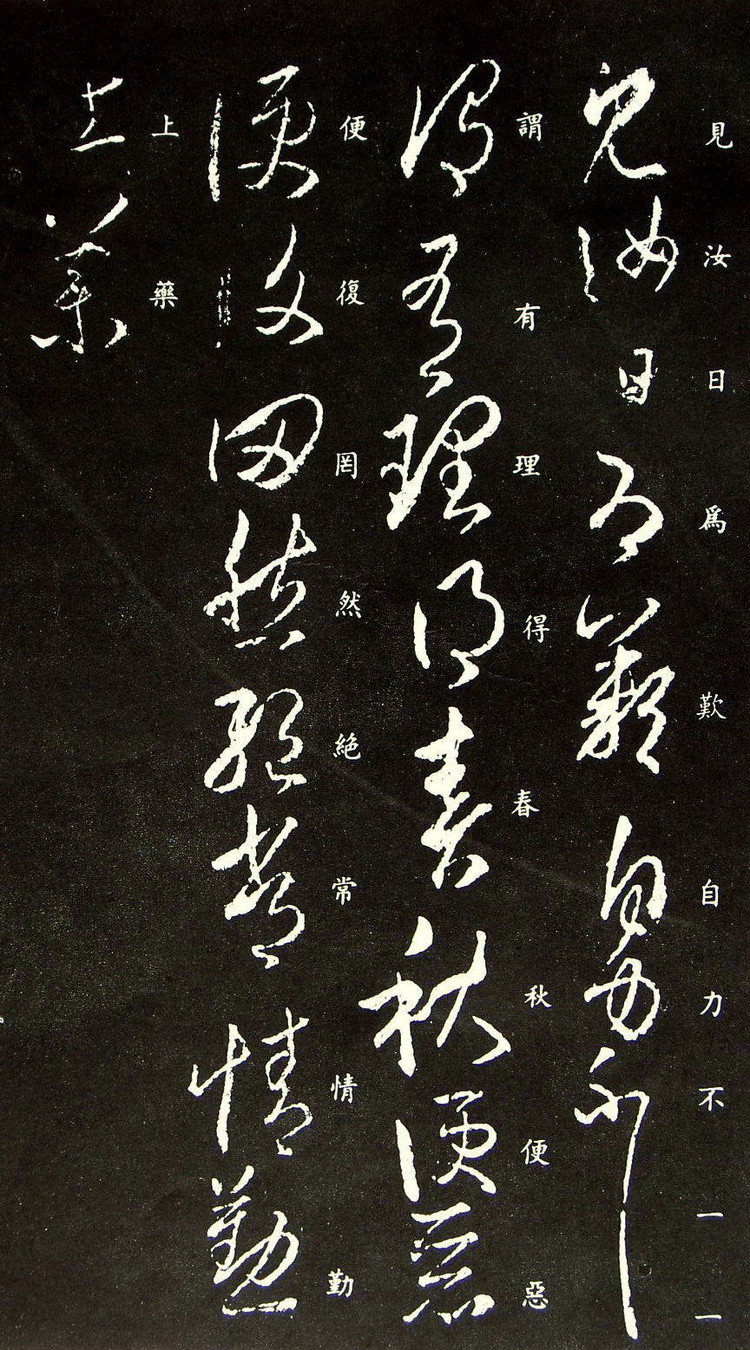 見汝日爲歎自力不一一
謂有理得春秋便惡
便復罔然絶常情勤
上藥